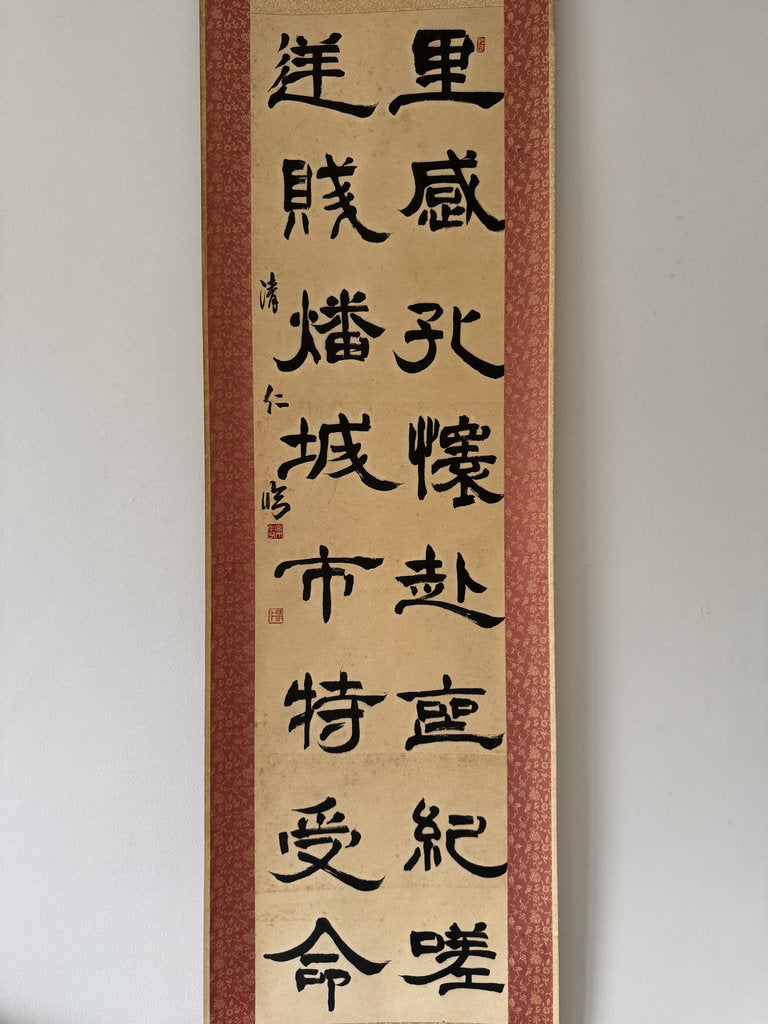 里感孔懷赴喪紀嗟
逆賊燔城市特受命
清仁臨